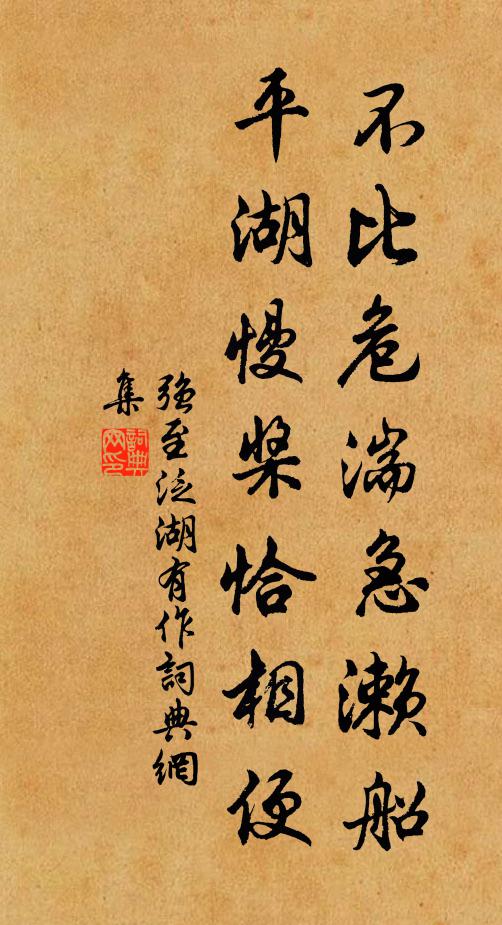 不比危湍急濑船
平湖慢桨恰相便
强至泛湖有作詞典網
集
詞典網印